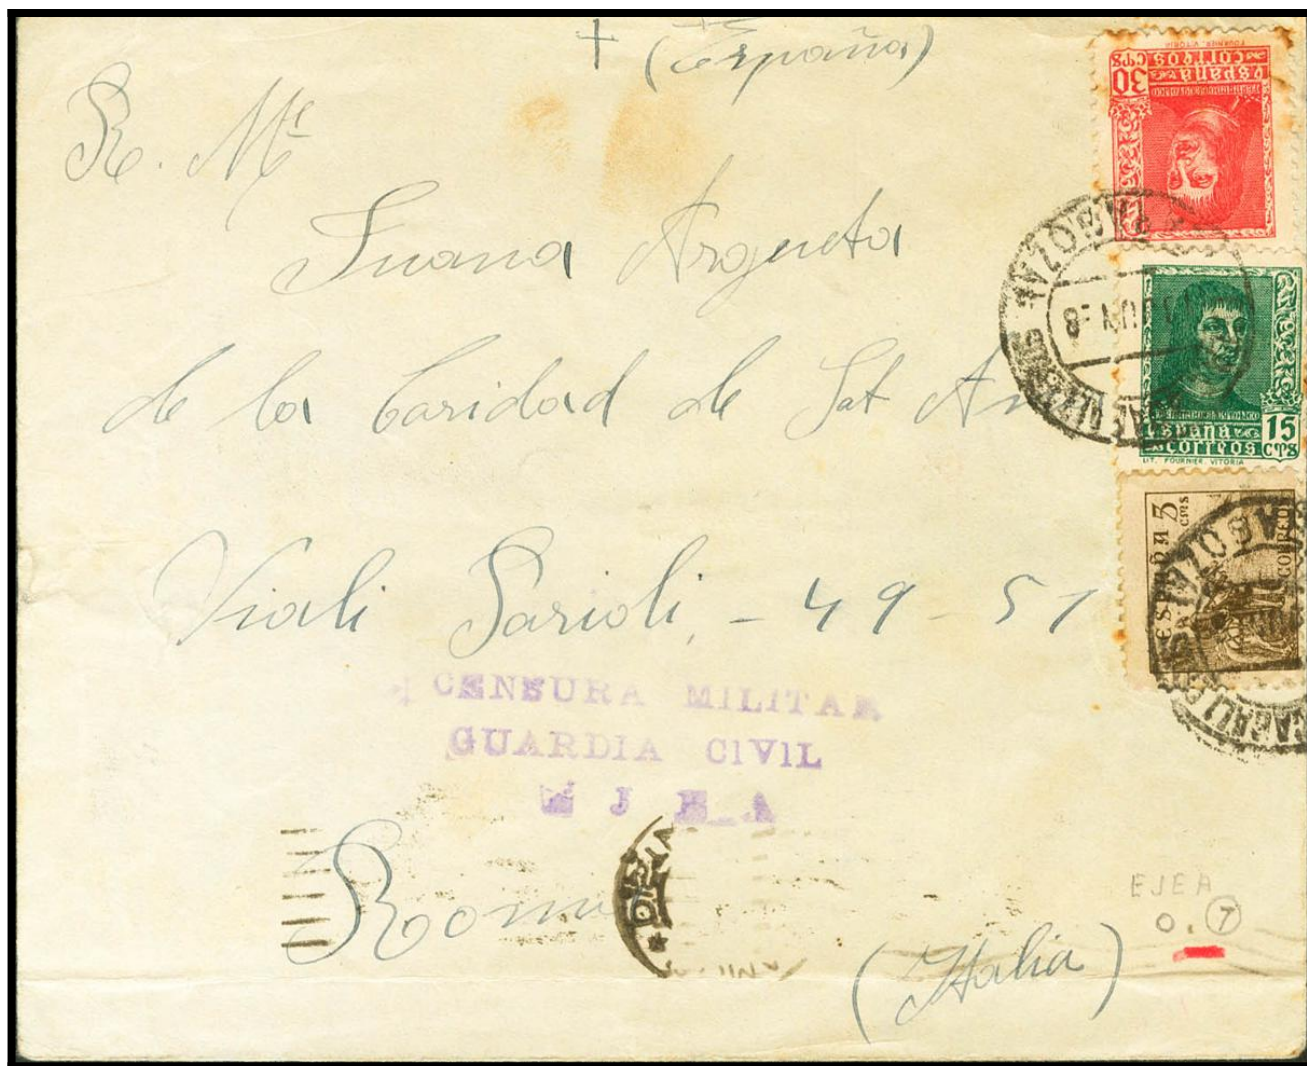 + (España)
R. Me
Juana Argueta
de la Caridad de Sat An
Viali Parioli, - 49 - 51
CENSURA MILITAR
GUARDIA CIVIL
EJEA
Roma
(Italia)
30 CTS
ESPAÑA
CORREOS
FOURNIER. VITORIA
ESPAÑA 15
CORREOS CTS
LIT. FOURNIER. VITORIA
ESPAÑA 5 CTS
CORREOS
EJEA
0. 7